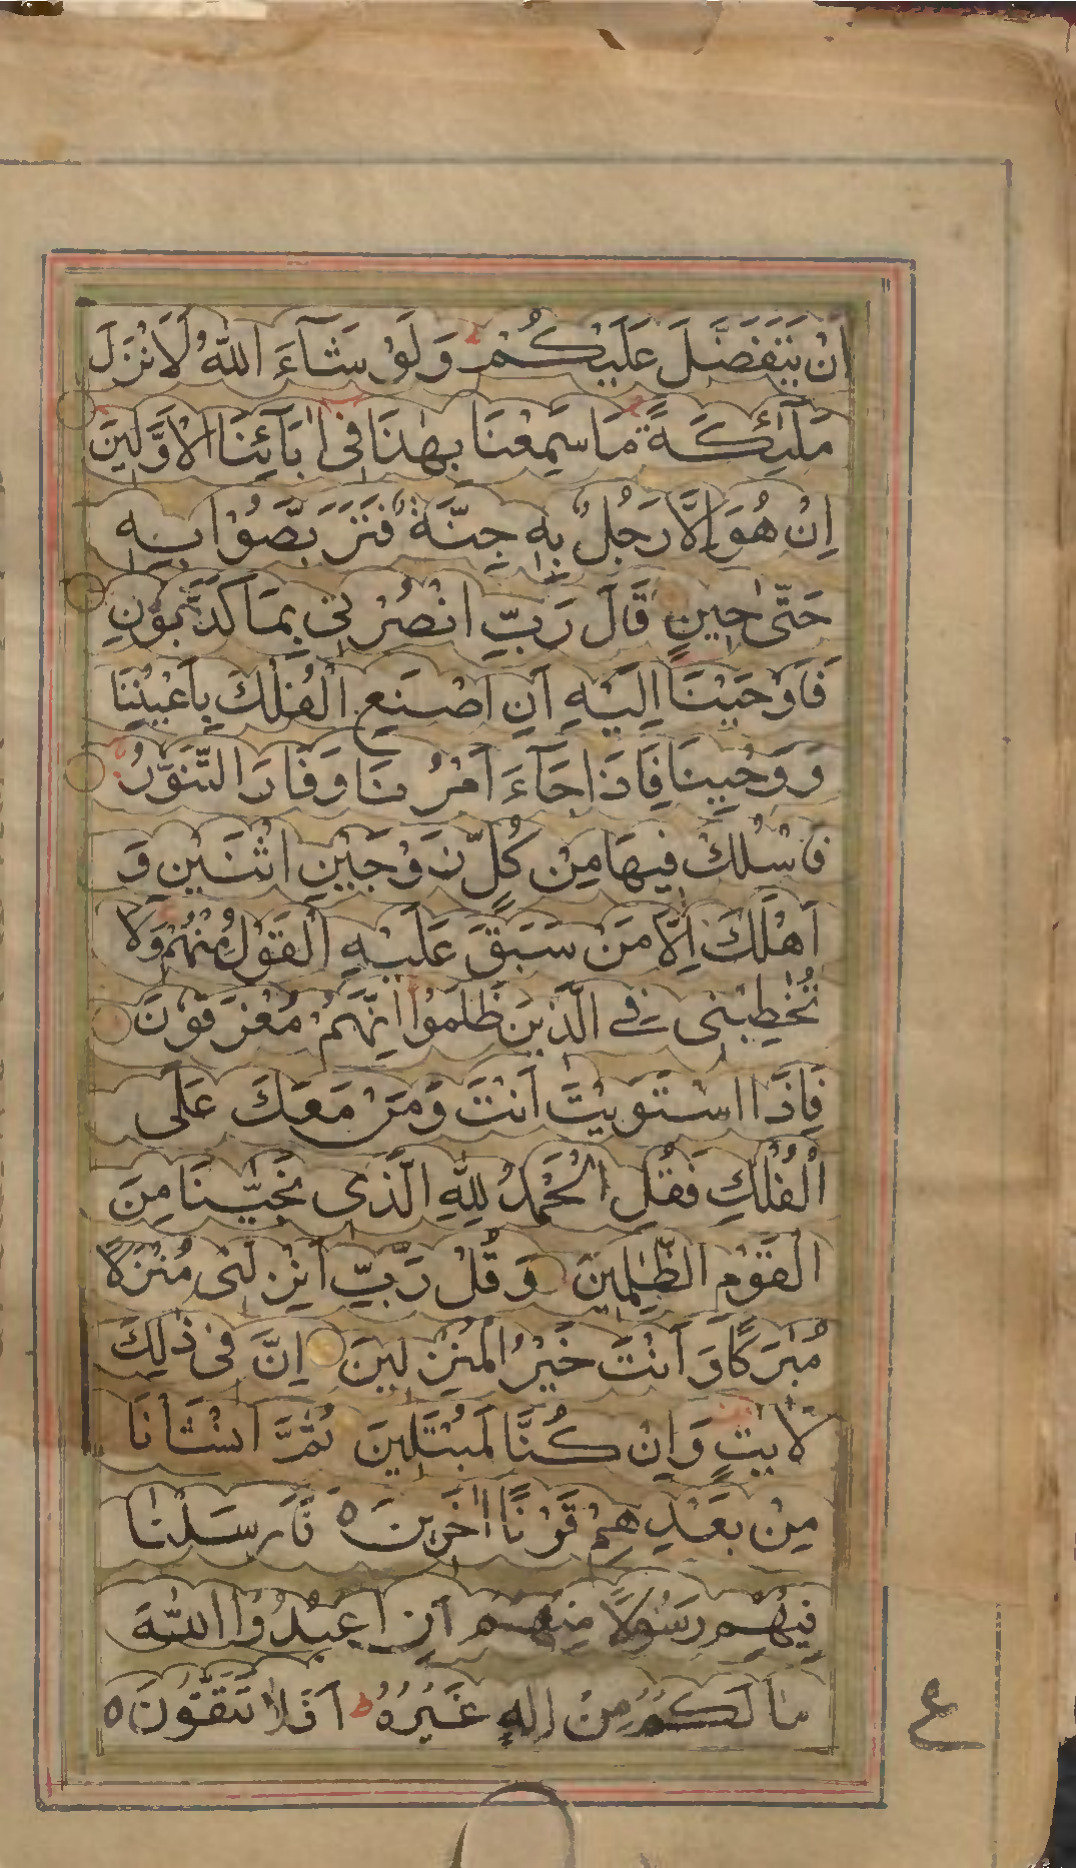 اَنْ يَتَفَضَّلَ عَلَيْكُمْ ط وَ لَوْ شَآءَ اللّٰهُ لَاَنْزَلَ
مَلٰٓئِكَةً مَا سَمِعْنَا بِهٰذَا فِیْ اٰبَآئِنَا الْاَوَّلِيْنَ
اِنْ هُوَ اِلَّا رَجُلٌ بِهٖ جِنَّةٌ فَتَرَبَّصُوْا بِهٖ
حَتّٰی حِيْنٍ قَالَ رَبِّ انْصُرْنِیْ بِمَا كَذَّبُوْنِ
فَاَوْحَيْنَا اِلَيْهِ اَنِ اصْنَعِ الْفُلْكَ بِاَعْيُنِنَا
وَ وَحْيِنَا فَاِذَا جَآءَ اَمْرُنَا وَ فَارَ التَّنُّوْرُ
فَاسْلُكْ فِيْهَا مِنْ كُلٍّ زَوْجَيْنِ اثْنَيْنِ وَ
اَهْلَكَ اِلَّا مَنْ سَبَقَ عَلَيْهِ الْقَوْلُ مِنْهُمْ وَلَا
تُخَاطِبْنِیْ فِے الَّذِيْنَ ظَلَمُوْا اِنَّهُمْ مُغْرَقُوْنَ
فَاِذَا اسْتَوَيْتَ اَنْتَ وَ مَنْ مَعَكَ عَلَی
الْفُلْكِ فَقُلِ الْحَمْدُ لِلّٰهِ الَّذِی نَجّٰنَا مِنَ
الْقَوْمِ الظّٰلِمِيْنَ وَ قُلْ رَبِّ اَنْزِلْنِیْ مُنْزَلًا
مُبٰرَكًا وَ اَنْتَ خَيْرُ الْمُنْزِلِيْنَ اِنَّ فِیْ ذٰلِكَ
لَاٰيٰتٍ وَ اِنْ كُنَّا لَمُبْتَلِيْنَ ثُمَّ اَنْشَاْنَا
مِنْ بَعْدِهِمْ قَرْنًا اٰخَرِيْنَ ٥ فَاَرْسَلْنَا
فِيْهِمْ رَسُوْلًا مِنْهُمْ اَنِ اعْبُدُوْا اللّٰهَ
مَا لَكُمْ مِنْ اِلٰهٍ غَيْرُهٗ ط اَفَلَا تَتَّقُوْنَ ٥
ع